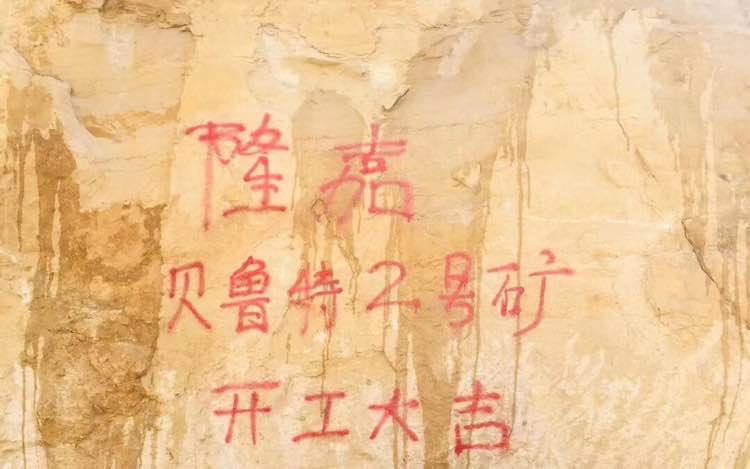 隆嘉
贝鲁特2号矿
开工大吉